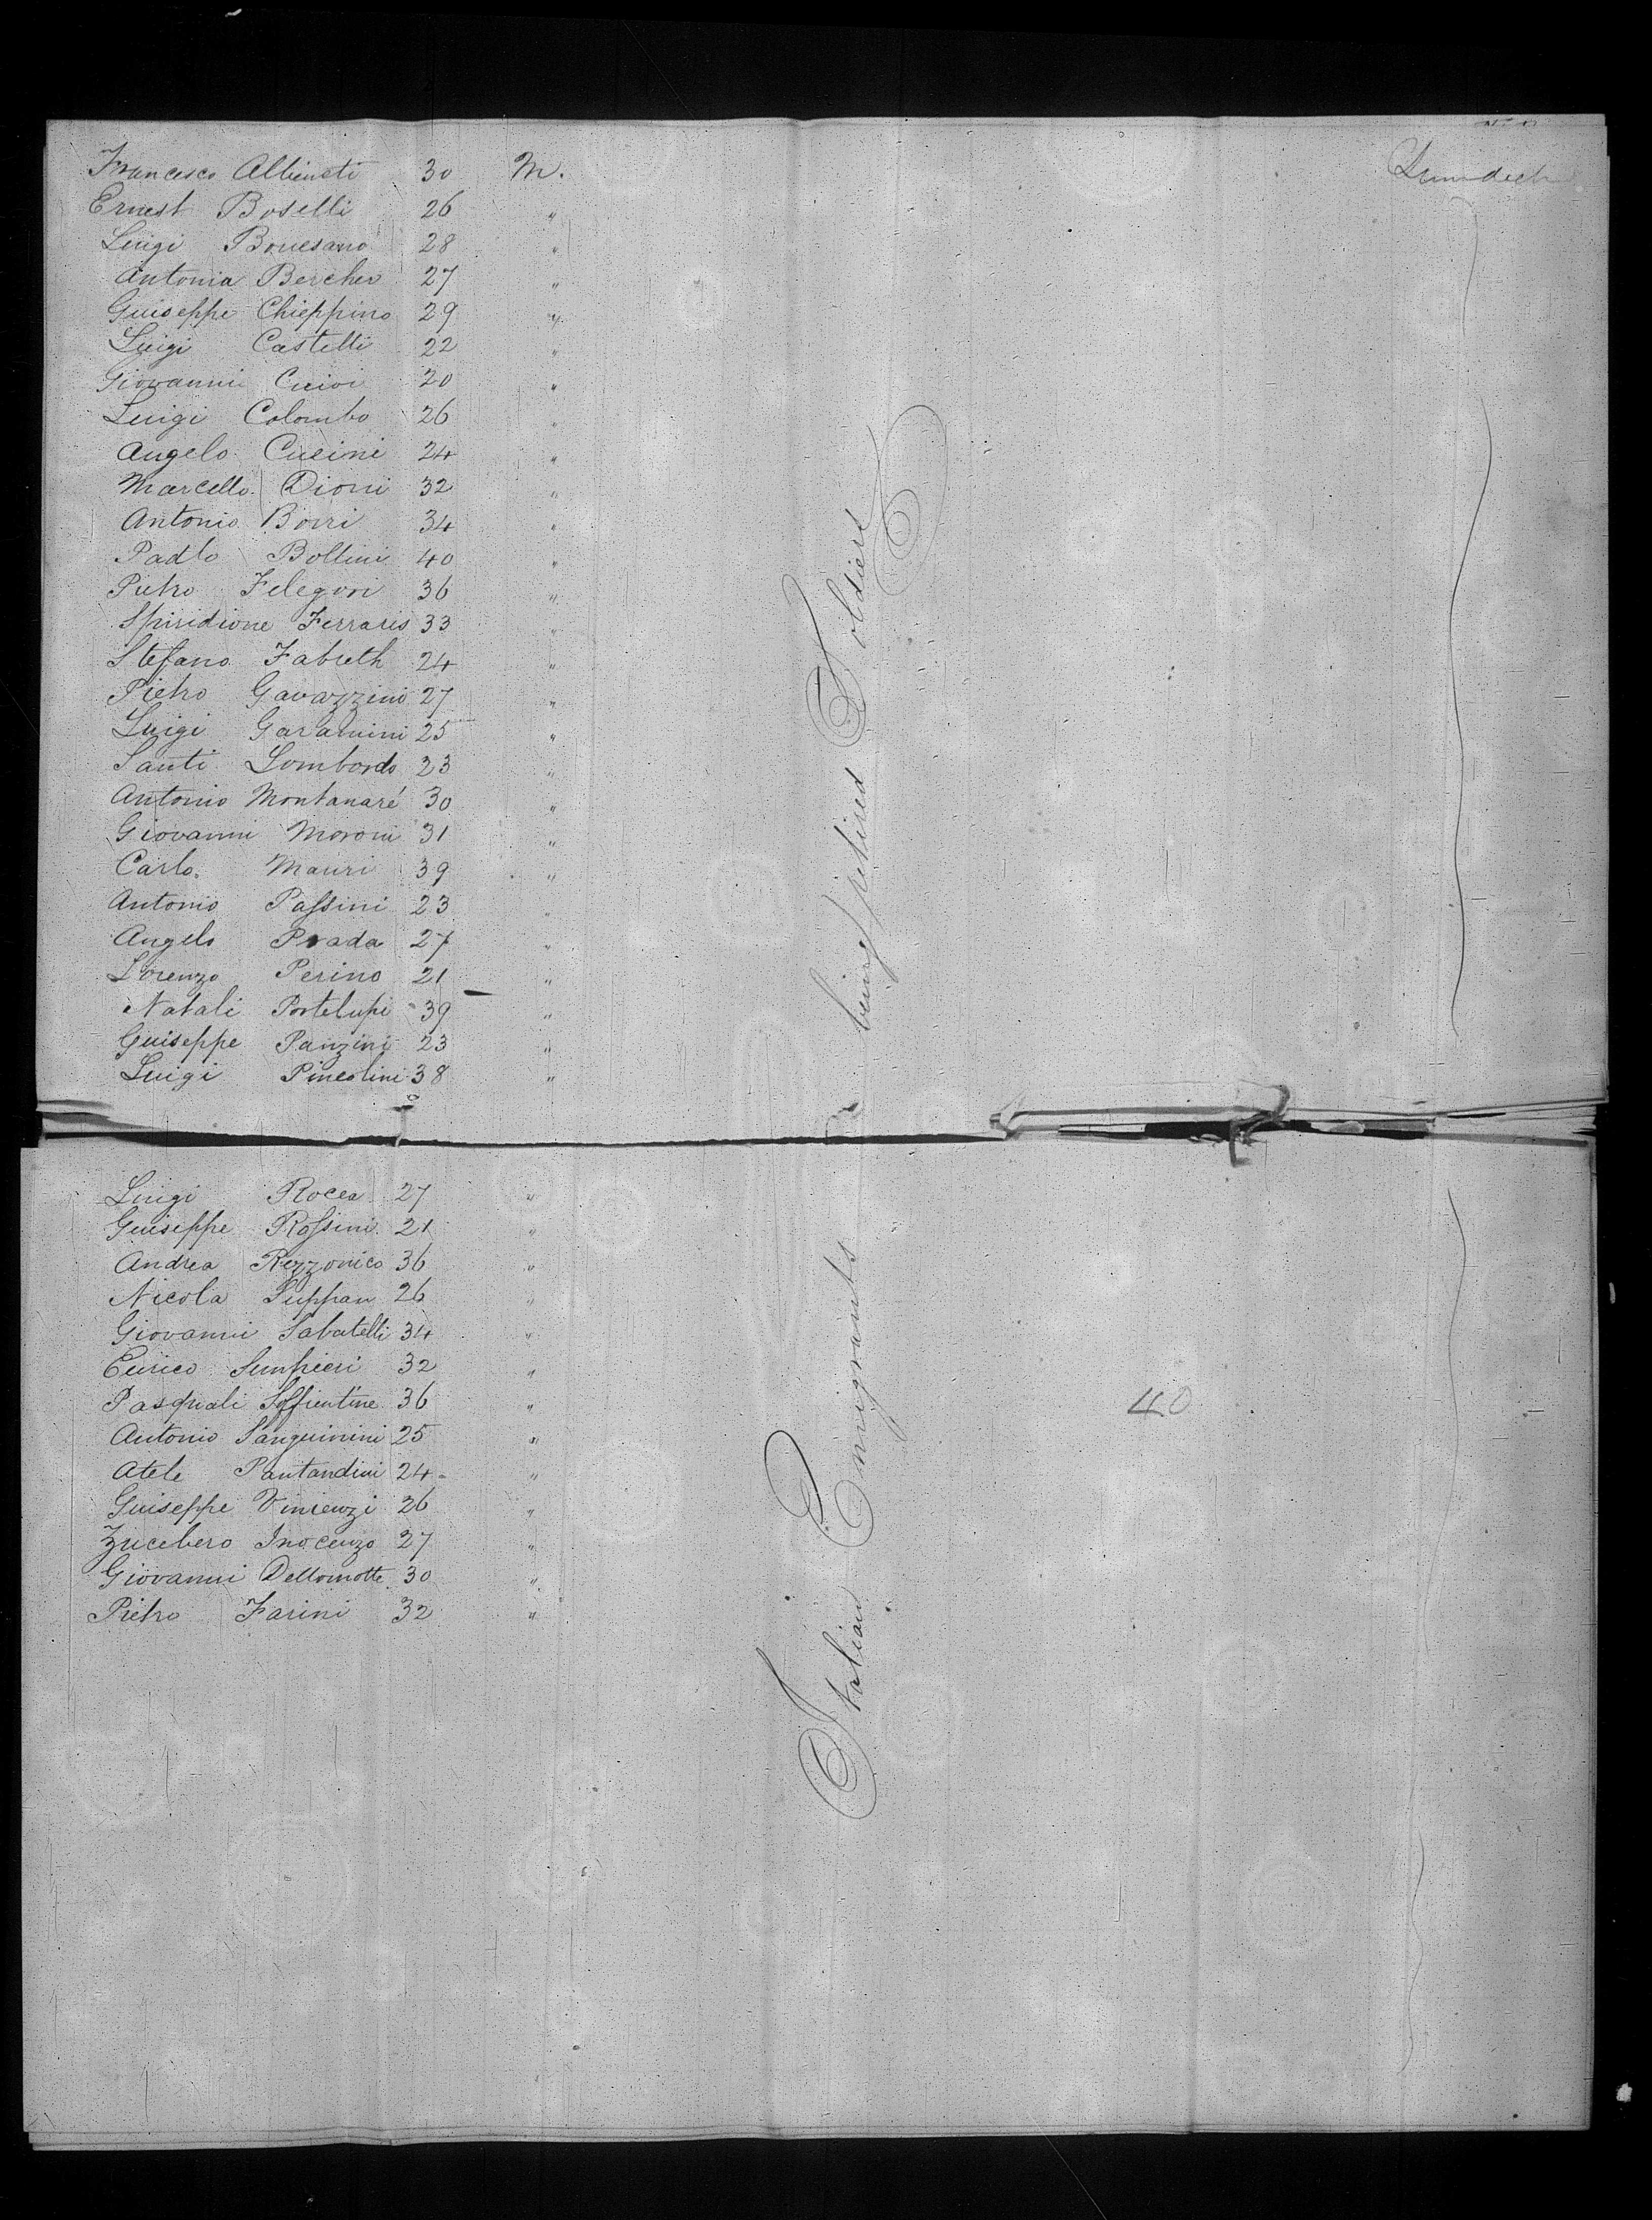 Francesco Albieneti 30 M.
Ernest Boselli 26 "
Luigi Bonesano 28 "
Antonia Bercher 27 "
Guiseppe Chieppino 29 "
Luigi Castelli 22 "
Giovanni 20 "
Luigi Colombo 26 "
Angelo Cucini 24 "
Marcello Dioni 32 "
Antonio Borri 34 "
Padlo Bollini 40 "
Pietro Felegori 36 "
Spiridione Ferraris 33 "
Stefano Fabreth 24 "
Pietro Gavazzini 27 "
Luigi Garamini 25 "
Santi Lombordo 23 "
Antonio Montanaré 30 "
Giovanni Moroni 31 "
Carlo. Mauri 39 "
Antonio Passini 23 "
Angelo Prada 27 "
Lorenzo Perino 21 "
Natali Portelupi 39 "
Guiseppe Panzini 23 "
Luigi Pineolini 38 "
Luigi Rocca 27 "
Guiseppe Rossini 21 "
Andrea Rezzonico 36 "
Nicola Suppan 26 "
Giovanni Sabatelli 34 "
Enrico 32 "
Pasquali Soffientine 36 "
Antonio Sanguinini 25 "
Atele Pantandini 24 "
Guiseppe Vinienzi 26 "
Zucebero Inocenzo 27 "
Giovanni Dellomotte 30 "
Pietro Farini 32 "
Italian Emigrants being retired Soldiers
40